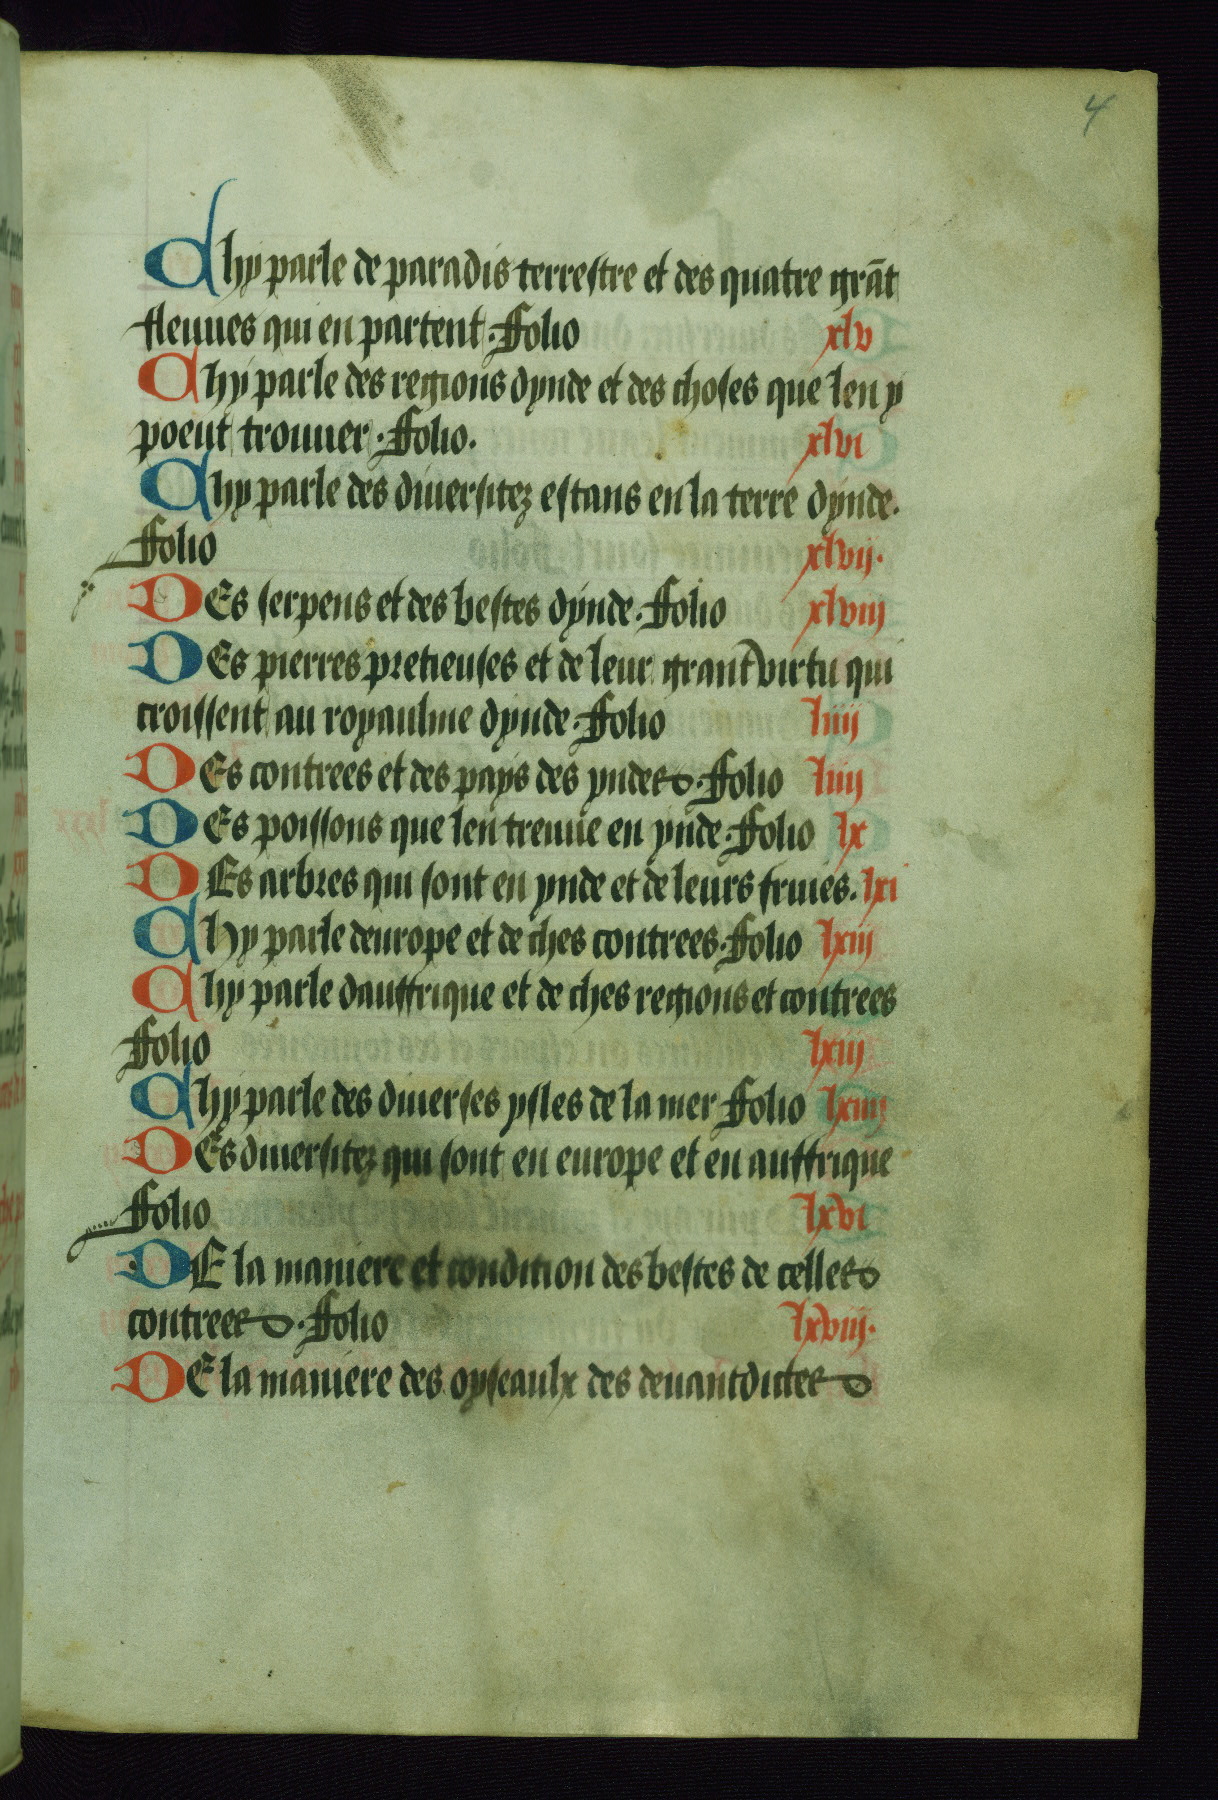 4
Chy parle de paradis terrestre et des quatre grãt
fleuues qui en partent. Folio xlv
Chy parle des regions dynde et des choses que len y
poeut trouuer. Folio. xlvi
Chy parle des diuersitez estans en la terre dynde.
Folio xlvij.
DEs serpens et des bestes dynde. Folio xlviij
DEs pierres pretieuses et de leur grant virtu qui
croissent au royaulme dynde. Folio liiij
DEs contrees et des pays des yndes. Folio liiij
DEs poissons que len treuue en ynde. Folio lx
DEs arbres qui sont en ynde et de leurs fruies. lxi
Chy parle deurope et de ches contrees. Folio lxiij
Chy parle dauffrique et de ches regions et contrees
Folio lxiij
Chy parle des diuerses ysles de la mer Folio lxiiij
DEs diuersitez qui sont en europe et en auffrique
Folio lxvi
DE la maniere et condition des bestes de celles
contrees. Folio lxviij.
DE la maniere des oyseaulx des deuantdictes